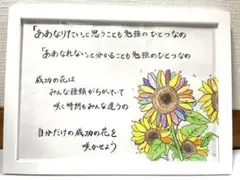 「ああなりたい」と思うことも勉強のひとつなの
「ああなれない」と分かることも勉強のひとつなの
成功の花は
みんな種類がちがっていて
咲く時期もみんな違うの
自分だけの成功の花を
咲かせよう